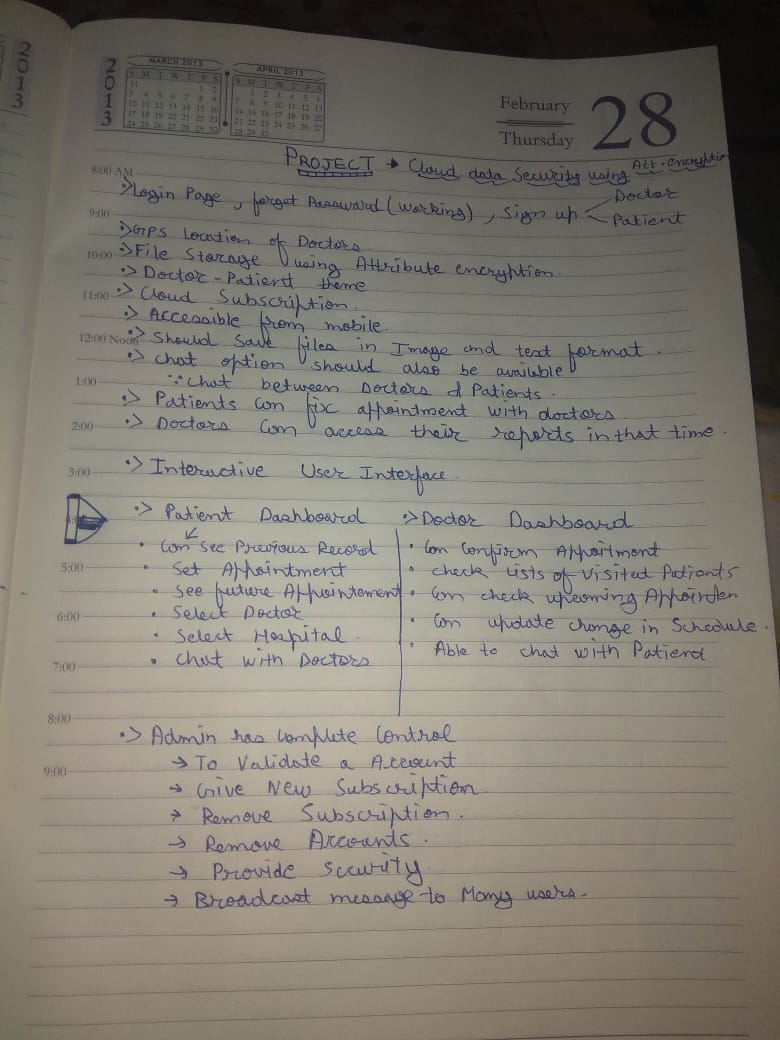 2013
2013
MARCH 2013
S M T W T F S
31 1 2
3 4 5 6 7 8 9
10 11 12 13 14 15 16
17 18 19 20 21 22 23
24 25 26 27 28 29 30
APRIL 2013
S M T W T F S
1 2 3 4 5 6
7 8 9 10 11 12 13
14 15 16 17 18 19 20
21 22 23 24 25 26 27
28 29 30
February
Thursday
28
PROJECT → Cloud data Security using Att-encryption
8:00 AM
Login Page, forget Password (working), Sign up Doctor
Patient
9:00
GPS Location of Doctors.
10:00 File Storage using Attribute encryption.
Doctor-Patient theme
11:00 Cloud Subscription.
Accessible from mobile.
12:00 Noon Should save files in Image and text format.
chat option should also be available
∵ chat between Doctors & Patients.
1:00
Patients can fix appointment with doctors.
2:00 Doctors can access their reports in that time.
3:00 Interactive User Interface.
Patient Dashboard
Can See Previous Record
5:00 Set Appointment
See future Appointement
6:00 Select Doctor
Select Hospital.
7:00 Chat with Doctors
Doctor Dashboard
Can Confirm Appoitment
check Lists of Visited Patients
Can check upcoming
Can update change in Schedule.
Able to chat with Patient
8:00
Admin has Complete Control
9:00 → To Validate a Account
→ Give New Subscription
→ Remove Subscription.
→ Remove Accounts.
→ Provide Security.
→ Broadcast message to Many users.